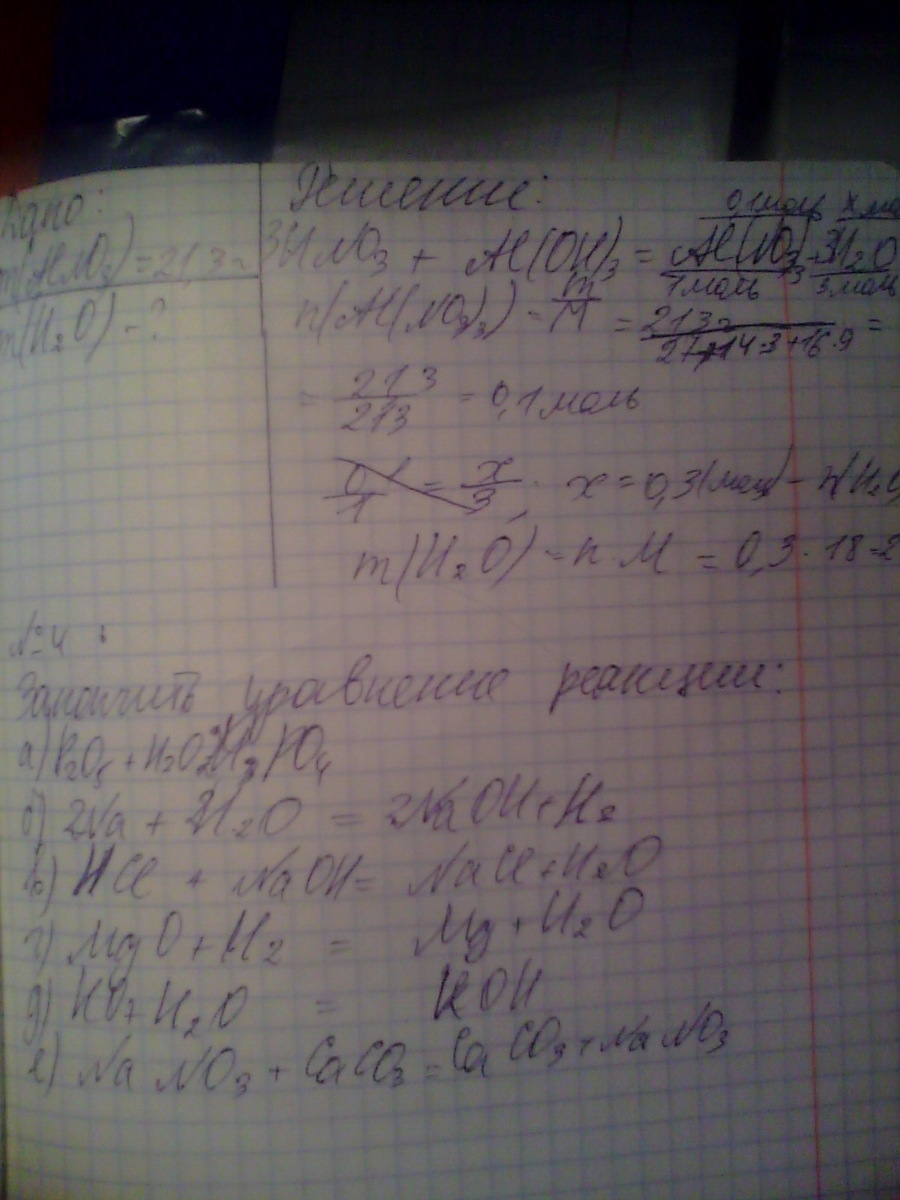 Дано:
m(AlNO3) = 21,3г
m(H2O) - ?
Решение:
0,1моль
3HNO3 + Al(OH)3 = Al(NO3)3 + 3H2O
1моль 3моль
n(Al(NO3)3) = m/M = 21,3г/27+14·3+16·9 =
= 21,3/213 = 0,1 моль
0,1/1 = x/3; x = 0,3(моль) - n(H2O
m(H2O) = n·M = 0,3·18=
№4
Закончить уравнение реакции:
а) P2O5 + H2O = 2H3PO4
б) 2Na + 2H2O = 2NaOH + H2
в) HCl + NaOH = NaCl + H2O
г) MgO + H2 = Mg + H2O
д) H2O = KOH
е) NaNO3 + CaCO3 = CaCO3 + NaNO3